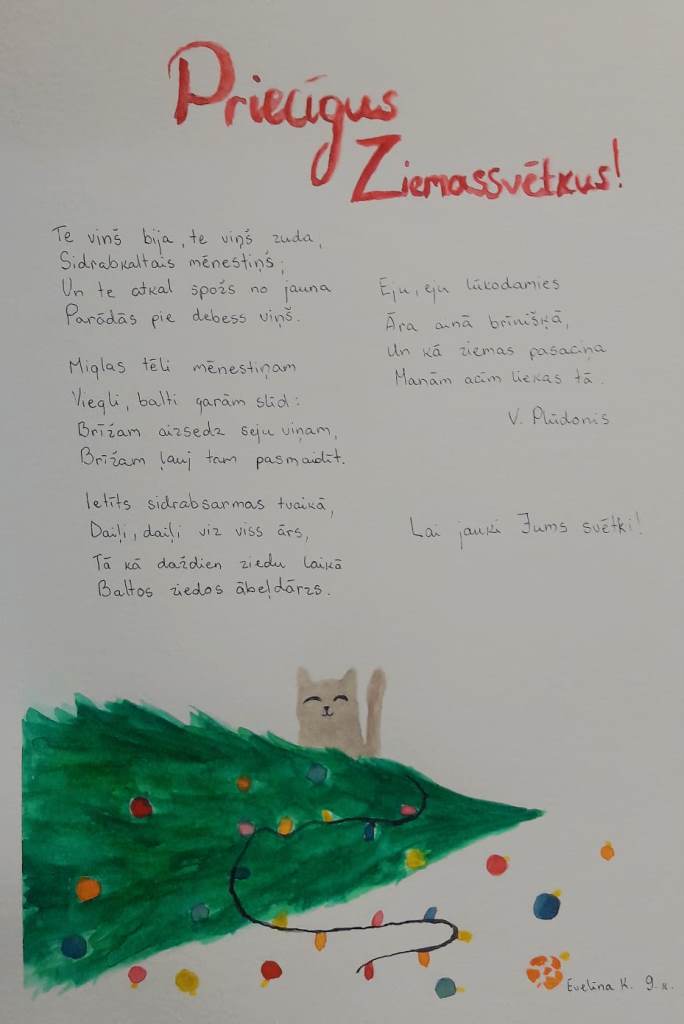 Priecīgus
Ziemassvētkus!
Te viņš bija, te viņš zuda,
Sidrabkaltais mēnestiņš;
Un te atkal spožs no jauna
Parādās pie debess viņš.
Miglas tēli mēnestiņam
Viegli, balti garām slīd:
Brīžam aizsedz seju viņam,
Brīžam ļauj tam pasmaidīt.
Ietīts sidrabsarmas tvaikā,
Daiļi, daiļi viz viss ārs,
Tā kā daždien ziedu laikā
Baltos ziedos ābeļdārzs.
Eju, eju lūkodamies
Āra ainā brīnišķā,
Un kā ziemas pasaciņa
Manām acīm liekas tā.
V. Plūdonis
Lai jauki Jums svētki!
Evelīna K. 9.k.